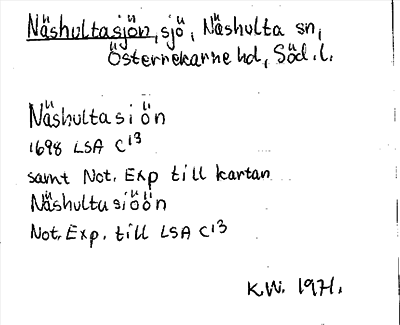 Näshultasjön, sjö, Näshulta sn,
Österrekarne hd, Söd. l.
Näshultasiön
1698 LSA C13
samt Not. Exp till kartan
Näshultasiöön
Not. Exp. till LSA C13
K.W. 1971.